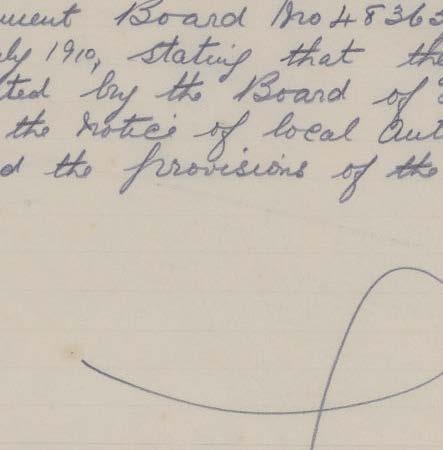 ument Board No 48363
ly 1910, stating that the
ted by the Board of
the notice of local Aut
d the provisions of the